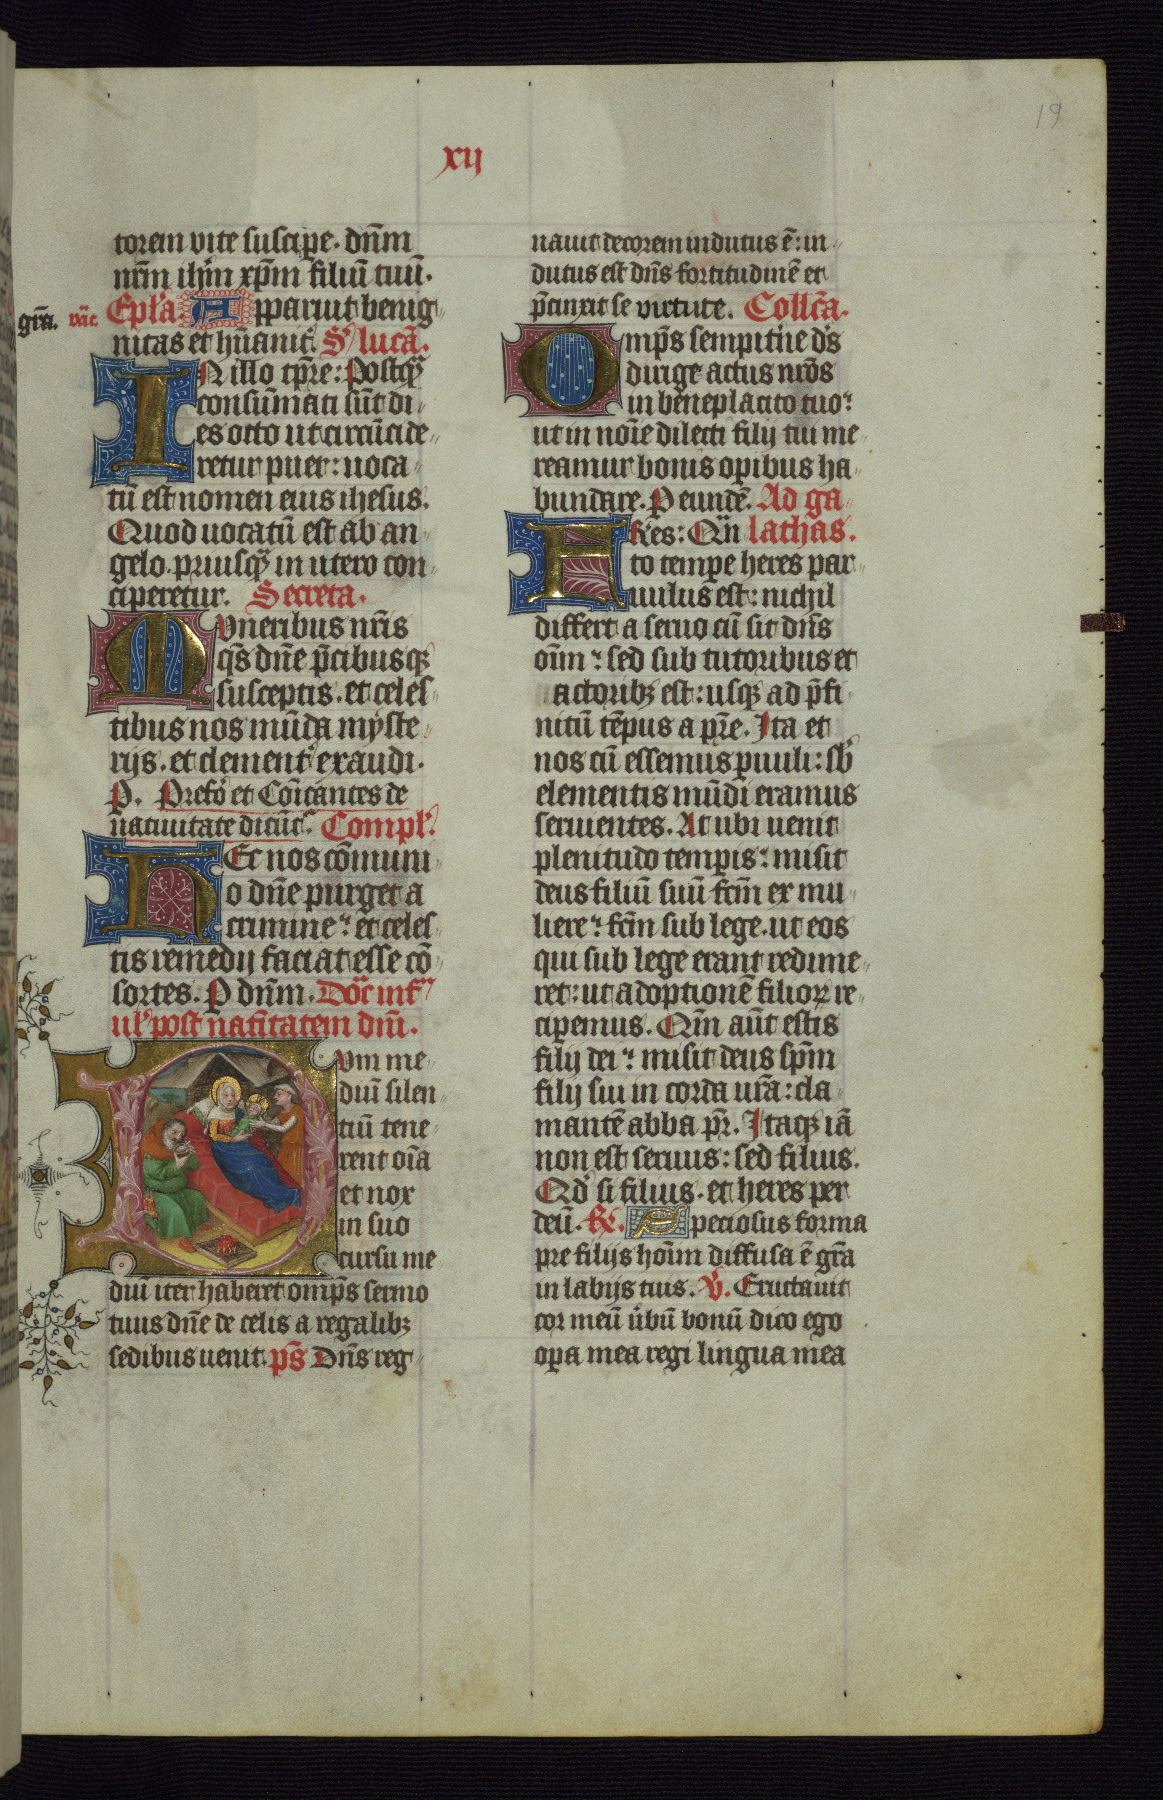 19
xij
torem vite suscipe. dn̄m
nr̄m ihm̄ xp̄m filiū tuū.
Epl̄a. Apparuit benig
gr̄a.
nitas et hūanit S luca.
IN illo tp̄re: Postq̄
consūmati sūt di
es octo ut circūcide
retur puer: uoca
tū est nomen eius ihesus.
Quod uocatū est ab an
gelo. priusq̄ in utero con
ciperetur. Secreta.
Muneribus nr̄is
qs̄ dn̄e p̄cibusq
susceptis. et celes
tibus nos mūda myste
rijs. et clement exaudi.
P. Prefo et Cōicantes de
natiuitate dicūt. Compl.
Hec nos cōmuni
o dn̄e purget a
crimine: et celes
tis remedij faciat esse cō
sortes. P dn̄m. Dōic inf
ul post natiītatem dn̄i.
Dum me
diū silen
tiū tene
rent oīa
et nox
in suo
cursu me
diū iter haberet omp̄s sermo
tuus dn̄e de celis a regalibꝫ
sedibus uenit. ps̄ Dn̄s reg
nauit decorem indutus ē: in
dutus est dn̄s fortitudinē et
p̄cinxit se virtute. Collc̄a.
Omp̄s sempitn̄e ds̄
dirige actus nr̄os
in beneplacito tuo:
ut in noīe dilecti filij tui me
reamur bonis opibus ha
bundare. P eundē. Ad ga
Fr̄es: Qn̄ lathas.
to tempe heres par
uulus est: nichil
differt a seruo cū sit dn̄s
oīm: sed sub tutoribus et
actoribꝫ est: usqꝫ ad p̄fi
nitū tēpus a pr̄e. Ita et
nos cū essemus puuli: sb
elementis mūdi eramus
seruientes. At ubi uenit
plenitudo tempis: misit
deus filiū suū fc̄m ex mu
liere: fc̄m sub lege. ut eos
qui sub lege erant redime
ret: ut adoptionē filioꝝ re
cipemus. Qm̄ aūt estis
filij dei: misit deus sp̄m
filij sui in corda ur̄a: cla
mantē abba pr̄. Itaqꝫ iā
non est seruus: sed filius.
Qd si filius. et heres per
deū. R. Speciosus forma
pre filijs hoīm diffusa ē gr̄a
in labijs tuis. V. Eructauit
cor meū ūbū bonū dico ego
opa mea regi lingua mea